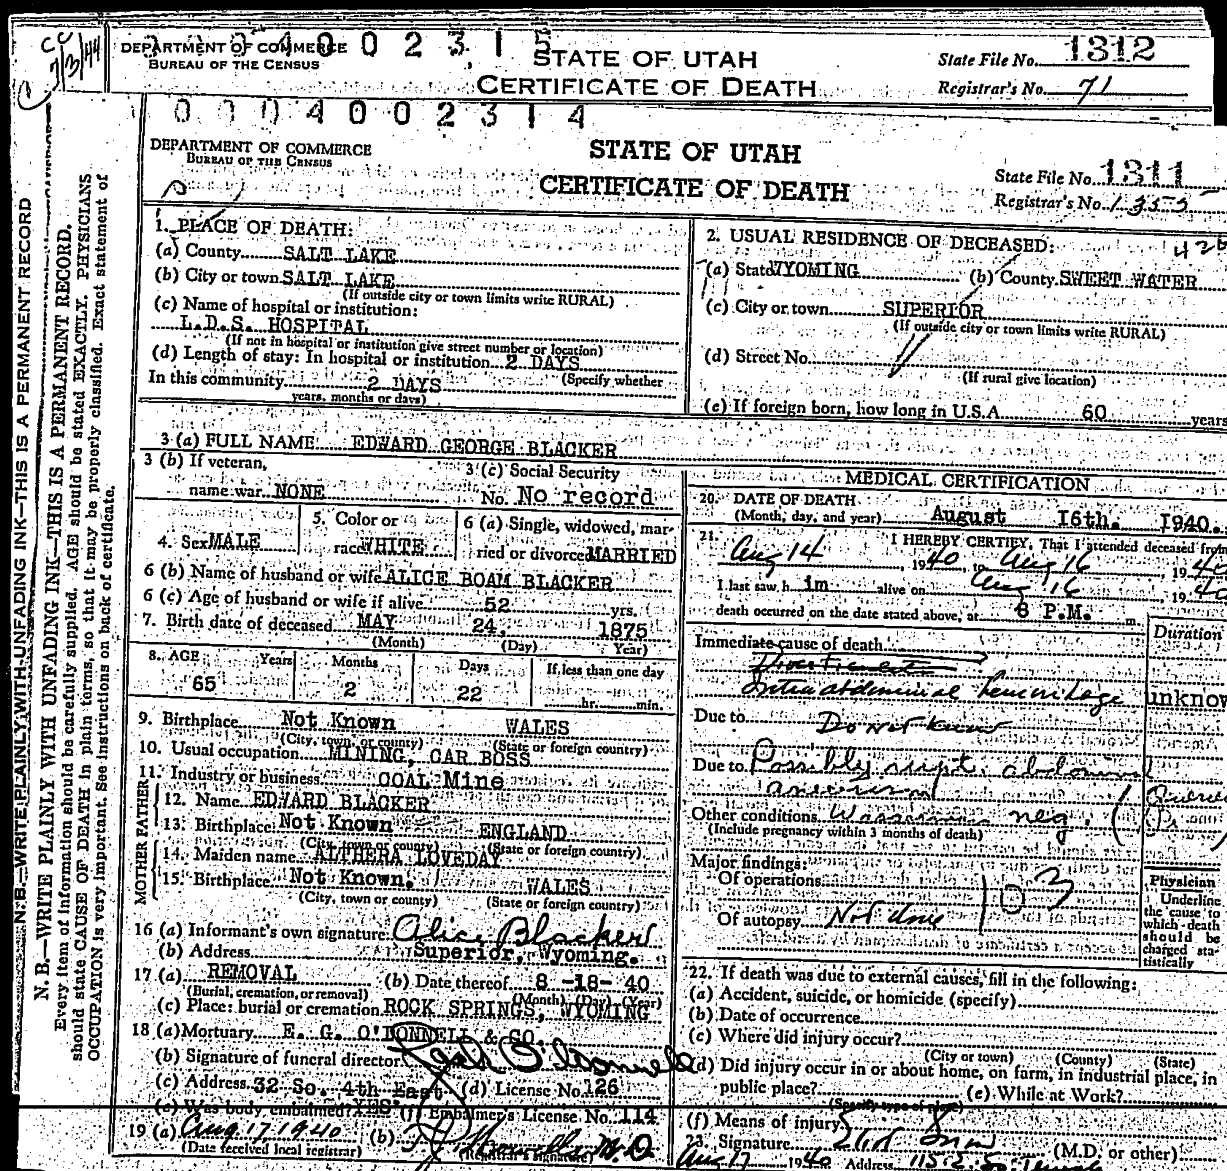 CC
7/3/44
DEPARTMENT OF COMMERCE
BUREAU OF THE CENSUS
0004002315
STATE OF UTAH
CERTIFICATE OF DEATH
State File No. 1312
Registrar's No. 71
0004002314
DEPARTMENT OF COMMERCE
BUREAU OF THE CENSUS
STATE OF UTAH
CERTIFICATE OF DEATH
State File No. 1311
Registrar's No. 1355
N. B.—WRITE PLAINLY WITH UNFADING INK—THIS IS A PERMANENT RECORD
N. B.—WRITE PLAINLY WITH UNFADING INK—THIS IS A PERMANENT RECORD.
Every item of information should be carefully supplied. AGE should be stated EXACTLY. PHYSICIANS
should state CAUSE OF DEATH in plain terms, so that it may be properly classified. Exact statement of
OCCUPATION is very important. See instructions on back of certificate.
1. PLACE OF DEATH:
(a) County SALT LAKE
(b) City or town SALT LAKE
(If outside city or town limits write RURAL)
(c) Name of hospital or institution:
L.D.S. HOSPITAL
(If not in hospital or institution give street number or location)
(d) Length of stay: In hospital or institution 2 DAYS
In this community 2 DAYS (Specify whether
years, months or days)
2. USUAL RESIDENCE OF DECEASED:
(a) State WYOMING (b) County SWEET WATER
(c) City or town SUPERIOR
(If outside city or town limits write RURAL)
(d) Street No.
(If rural give location)
(e) If foreign born, how long in U.S.A. 60 years
3 (a) FULL NAME EDWARD GEORGE BLACKER
3 (b) If veteran,
name war NONE
3 (c) Social Security
No. No record
4. Sex MALE
5. Color or
race WHITE
6 (a) Single, widowed, mar-
ried or divorced MARRIED
6 (b) Name of husband or wife ALICE BOAM BLACKER
6 (c) Age of husband or wife if alive 52 yrs.
7. Birth date of deceased MAY 24, 1875
(Month) (Day) (Year)
8. AGE Years Months Days If less than one day
65 2 22 hr. min.
9. Birthplace Not Known WALES
(City, town, or county) (State or foreign country)
10. Usual occupation MINING, CAR BOSS
11. Industry or business COAL Mine
FATHER
12. Name EDWARD BLACKER
13. Birthplace Not Known ENGLAND
(City, town or county) (State or foreign country)
MOTHER
14. Maiden name ALTHERA LOVEDAY
15. Birthplace Not Known. WALES
(City, town or county) (State or foreign country)
16 (a) Informant's own signature Alice Blacker
(b) Address Superior, Wyoming.
17 (a) REMOVAL (b) Date thereof 8 -18- 40
(Burial, cremation, or removal) (Month) (Day) (Year)
(c) Place: burial or cremation ROCK SPRINGS, WYOMING
18 (a) Mortuary E. G. O'DONNELL & CO.
(b) Signature of funeral director
(c) Address 32 So. 4th East (d) License No. 126
(e) Was body embalmed? YES (f) Embalmer's License No. 114
19 (a) Aug 17 1940 (b) M.D.
(Date received local registrar) (Registrar's signature)
MEDICAL CERTIFICATION
20. DATE OF DEATH
(Month, day, and year) August 16th. 1940.
21. I HEREBY CERTIFY, That I attended deceased from
Aug 14, 1940, to Aug 16, 1940
I last saw him alive on Aug 16, 1940
death occurred on the date stated above, at 8 P.M. m.
Duration
Immediate cause of death
Intra abdominal hemorrhage unknow
Due to Do not know
Due to Possibly rupt. abdominal
aneurism
Other conditions neg.
(Include pregnancy within 3 months of death)
Major findings:
Of operations
Of autopsy Not done
103
Physician
Underline
the cause to
which death
should be
charged sta-
tistically
22. If death was due to external causes, fill in the following:
(a) Accident, suicide, or homicide (specify)
(b) Date of occurrence
(c) Where did injury occur?
(City or town) (County) (State)
(d) Did injury occur in or about home, on farm, in industrial place, in
public place? (e) While at Work?
(Specify type of place)
(f) Means of injury
23. Signature (M.D. or other)
Aug 17 1940 Address